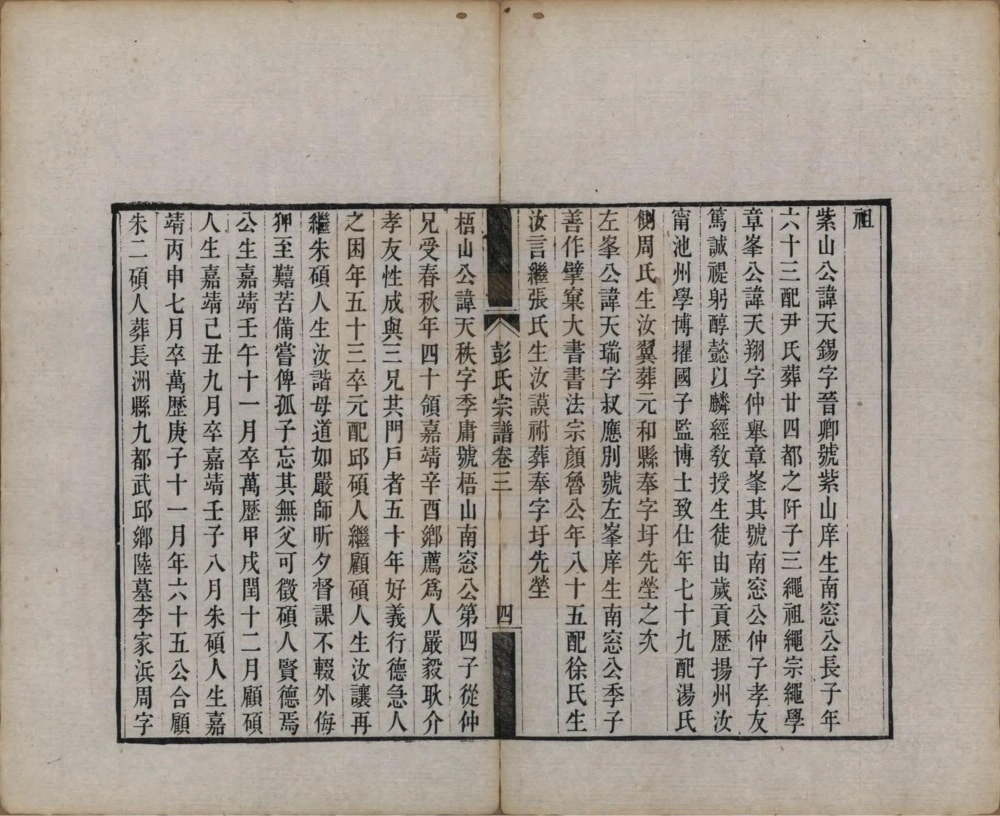 祖
紫山公諱天錫字晉卿號紫山庠生南窓公長子年
六十三配尹氏葬廿四都之阡子三繩祖繩宗繩學
章峯公諱天翔字仲舉章峯其號南窓公仲子孝友
篤誠禔躬醇懿以麟經教授生徒由歲貢歷揚州汝
甯池州學博擢國子監博士致仕年七十九配湯氏
側周氏生汝翼葬元和縣奉字圩先塋之次
左峯公諱天瑞字叔應別號左峯庠生南窓公季子
善作擘窠大書書法宗顏魯公年八十五配徐氏生
汝言繼張氏生汝謨祔葬奉字圩先塋
彭氏宗譜卷三 四
梧山公諱天秩字季庸號梧山南窓公第四子從仲
兄受春秋年四十領嘉靖辛酉鄉薦爲人嚴毅耿介
孝友性成與三兄共門戶者五十年好義行德急人
之困年五十三卒元配邱碩人繼顧碩人生汝讓再
繼朱碩人生汝諧母道如嚴師昕夕督課不輟外侮
狎至囏苦備嘗俾孤子忘其無父可徵碩人賢德焉
公生嘉靖壬午十一月卒萬歷甲戌閏十二月顧碩
人生嘉靖己丑九月卒嘉靖壬子八月朱碩人生嘉
靖丙申七月卒萬歷庚子十一月年六十五公合顧
朱二碩人葬長洲縣九都武邱鄉陸墓李家浜周字